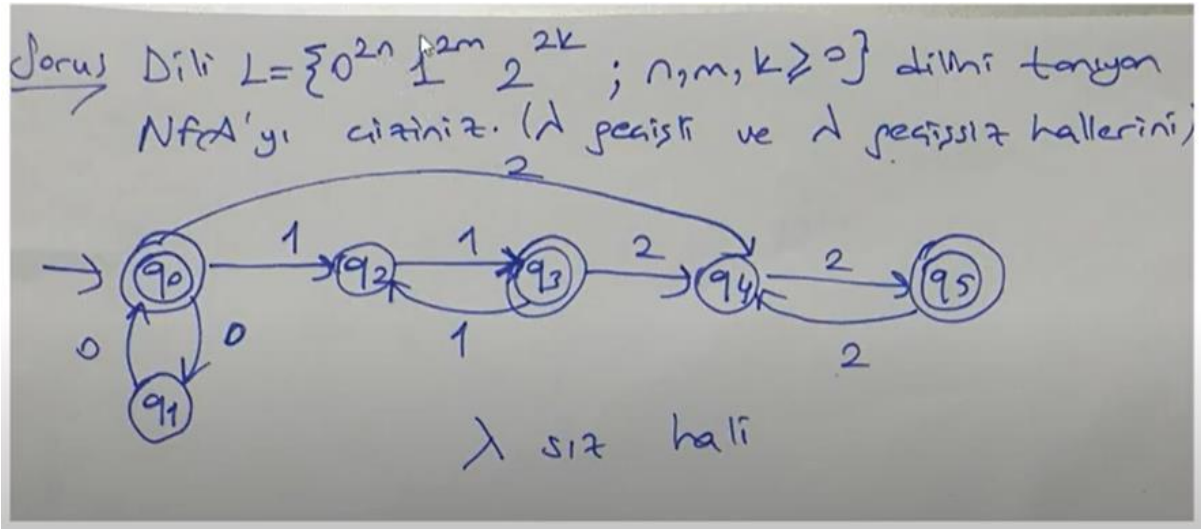 Soru) Dili L={0²ⁿ 1²ᵐ 2²ᵏ ; n,m,k≥0} dilini tanıyan
NFA'yı çiziniz. (λ geçişli ve λ geçişsiz hallerini)
2
1 1 2 2
q0 q2 q3 q4 q5
0 0 1 2
q1
λ sız hali